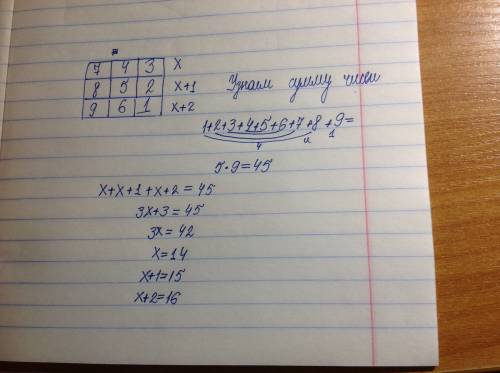 7 4 3 x
8 5 2 x+1
9 6 1 x+2
Узнаем сумму чисел
1+2+3+4+5+6+7+8+9=
4 и 1
5·9=45
x+x+1+x+2=45
3x+3=45
3x=42
x=14
x+1=15
x+2=16